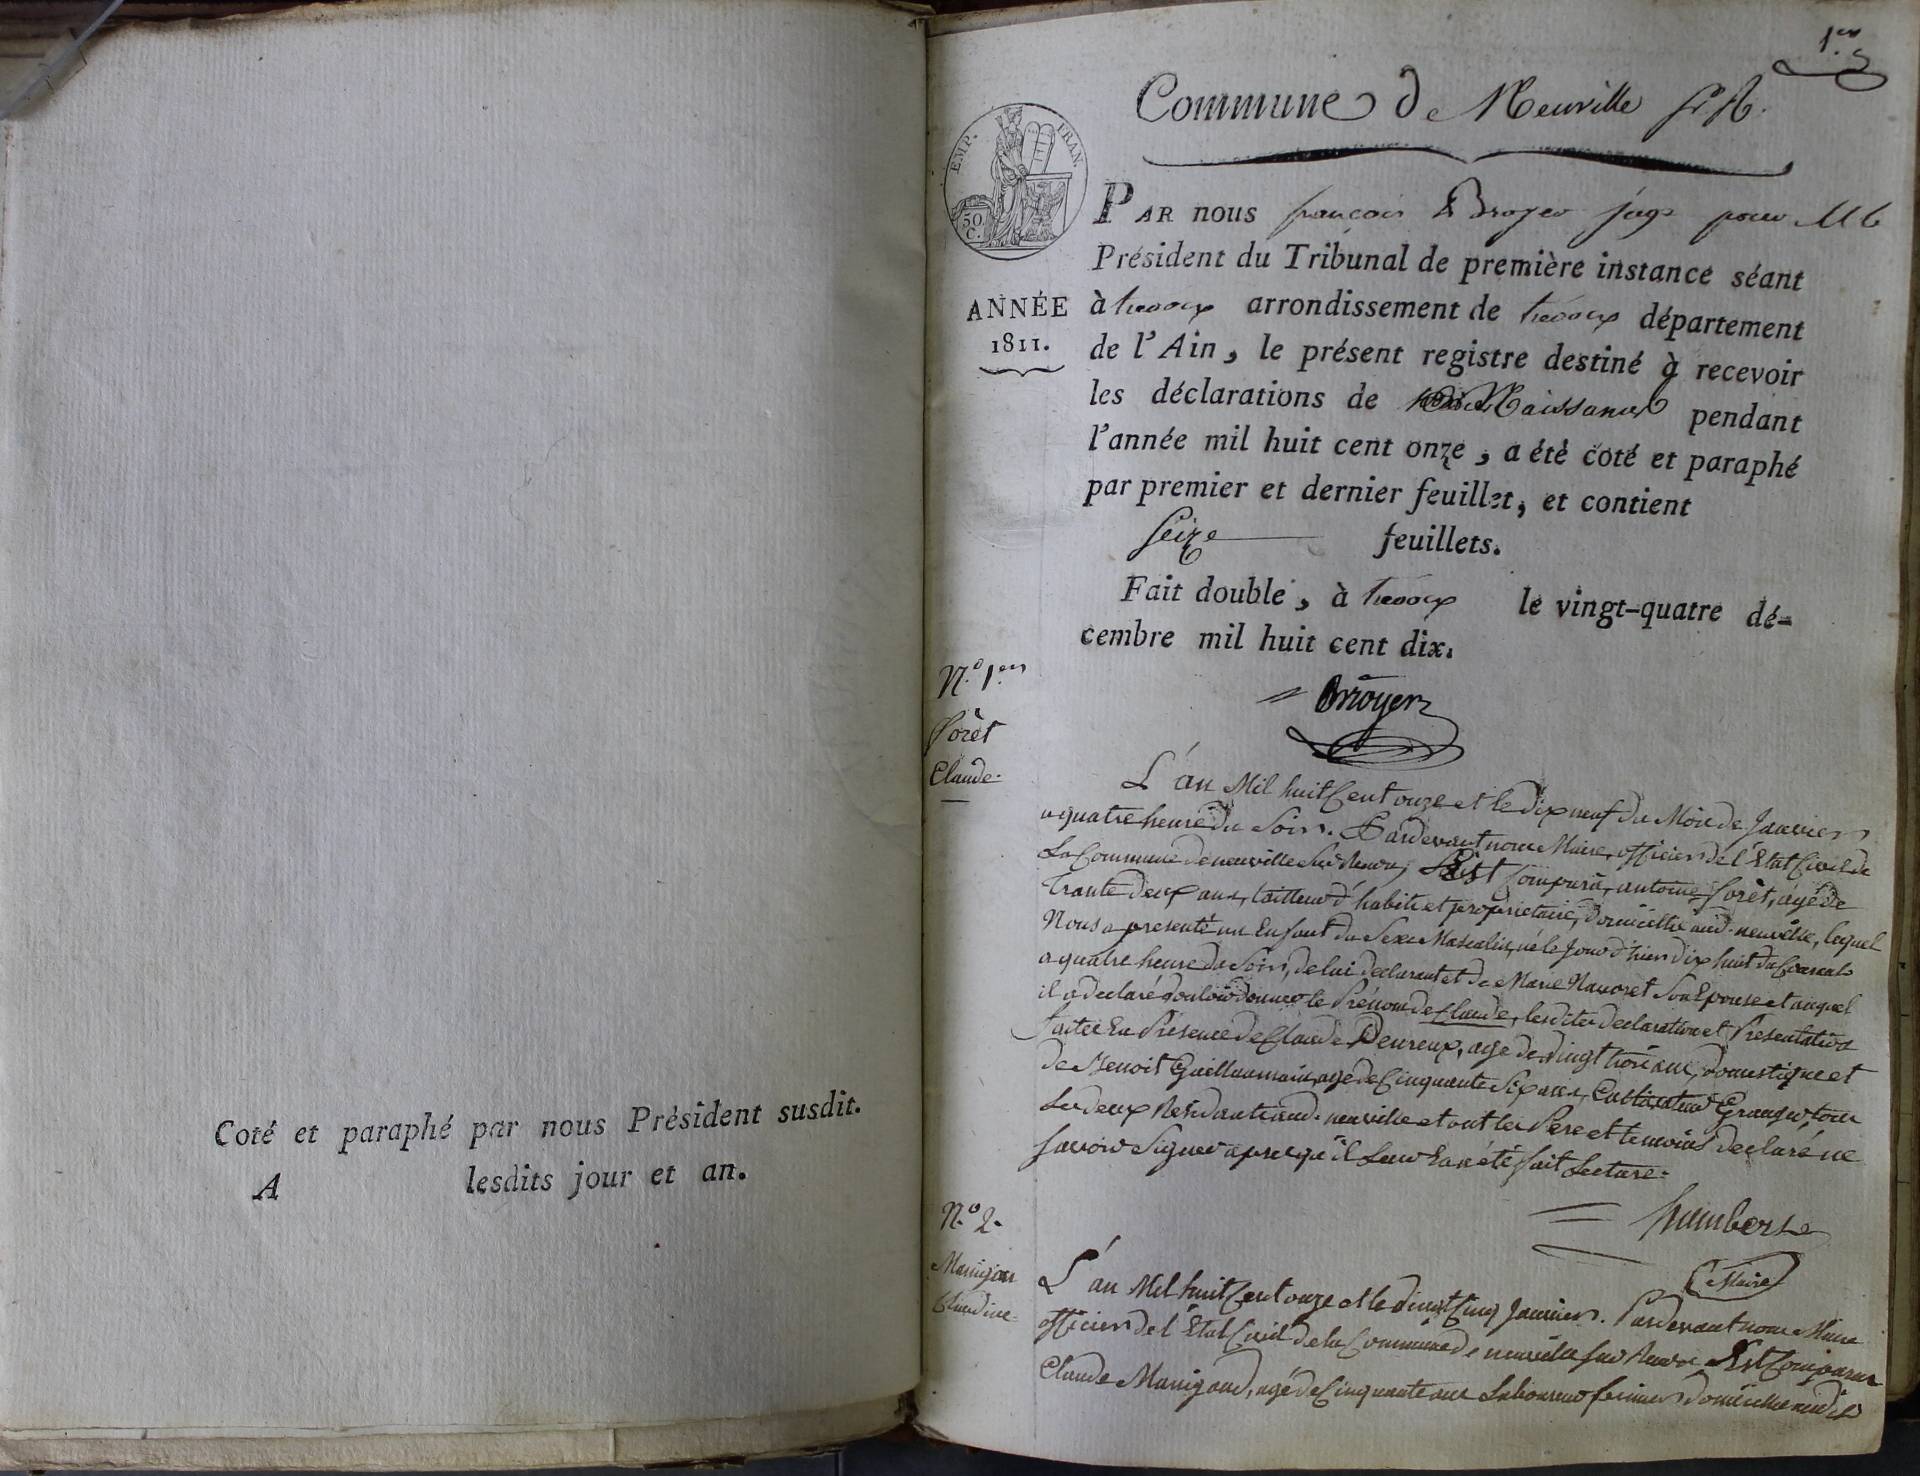 Coté et paraphé par nous Président susdit.
A lesdits jour et an.
1.er
Commune de Neuville
EMP. FRAN.
50 C.
ANNÉE
1811.
PAR nous françois Broyer juge pour
Président du Tribunal de première instance séant
à trevoux arrondissement de trevoux département
de l'Ain, le présent registre destiné à recevoir
les déclarations de Naissances pendant
l'année mil huit cent onze, a été coté et paraphé
par premier et dernier feuillet, et contient
seize feuillets.
Fait double, à trevoux le vingt-quatre dé-
cembre mil huit cent dix.
Broyer
N.o 1.er
forèt
Claude.
L'an Mil huit Cent onze et le dix neuf du Mois de Janvier
a quatre heure du Soir. Pardevant nous Maire, officier de l'Etat Civil de
La Commune de neuville Sur Renon, Est Comparu, antoine forèt, agé de
Trante deux ans, tailleur d'habits et propriétaire, domicilié aud. neuville, lequel
Nous a presenté un Enfant du Sexe Masculin, né le Jour d'hier dix huit du Courant
a quatre heure du Soir, de lui declarant et de Marie Son Epouse et auquel
il a declaré vouloir donner le Prénom de Claude, lesdites declaration et Presentation
faitte En Présence de Claude Peureux, age de vingt trois ans, domestique et
de Benoit agé de Cinquante Six ans, Cultivateur Granger, tous
Les deux Residants aud. neuville et ont les Pere et temoins declaré ne
Savoir Signer apres qu'il Leur En a été fait Lecture.
humbert
Maire
N.o 2.
Manigau
Claudine.
L'an Mil huit Cent onze et le vingt Cinq Janvier. Pardevant nous Maire
officier de l'Etat Civil de la Commune de neuville sur Renon Est Comparu
Claude Manigaud, agé de Cinquante ans Laboureur fermier domicilié audit